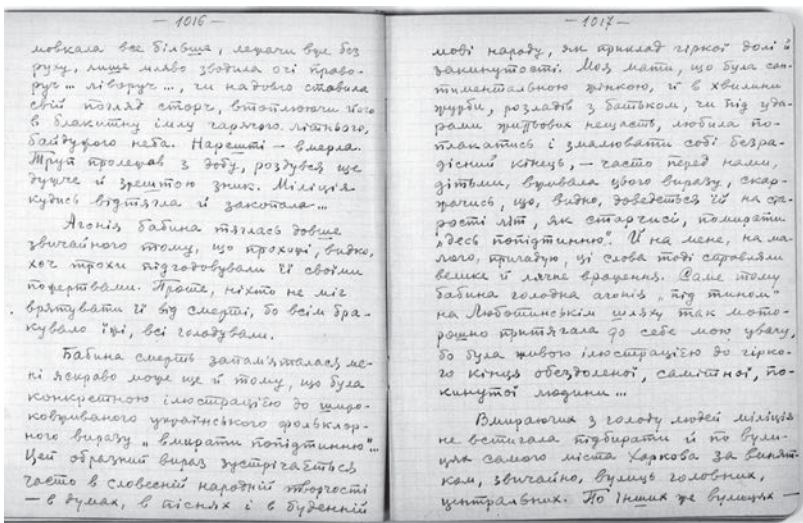 — 1016 —
мовкала все більше, лежачи вже без
руху, лише мляво зводила очі право-
руч... ліворуч..., чи надовго ставила
свій погляд сторч, втоплюючи його
в блакитну імлу гарячого літнього,
байдужого неба. Нарешті — вмерла.
Труп пролежав з добу, роздувся ще
дужче й зрештою зник. Міліція
кудись відтягла й закопала...
Агонія бабина тяглась довше
звичайного тому, що прохожі, видко,
хоч трохи підгодовували її своїми
пожертвами. Проте, ніхто не міг
врятувати її від смерті, бо всім бра-
кувало їжі, всі голодували.
Бабина смерть запам'яталася ме-
ні яскраво може ще й тому, що була
конкретною ілюстрацією до широ-
ковживаного українського фольклор-
ного виразу „вмирати попідтинню"...
Цей образний вираз зустрічається
часто в словесній народній творчості
— в думах, в піснях і в буденній
— 1017 —
мові народу, як приклад гіркої долі й
закинутості. Моя мати, що була сан-
тиментальною жінкою, й в хвилини
журби, розладів з батьком, чи під уда-
рами життьових нещасть, любила по-
плакатись і змалювати собі безра-
дісний кінець, — часто перед нами,
дітьми, вживала цього виразу, скар-
жачись, що, видко, доведеться їй на ста-
рості літ, як старчисі, помирати
„десь попідтинню". Й на мене, на ма-
лого, пригадую, ці слова тоді справляли
велике й лячне враження. Саме тому
бабина голодна агонія „під тином"
на Люботинськім шляху так мото-
рошно притягала до себе мою увагу,
бо була живою ілюстрацією до гірко-
го кінця обездоленої, самітної, по-
кинутої людини...
Вмираючих з голоду людей міліція
не встигала підбирати й по вули-
цях самого міста Харкова за винят-
ком, звичайно, вулиць головних,
центральних. По інших же вулицях —